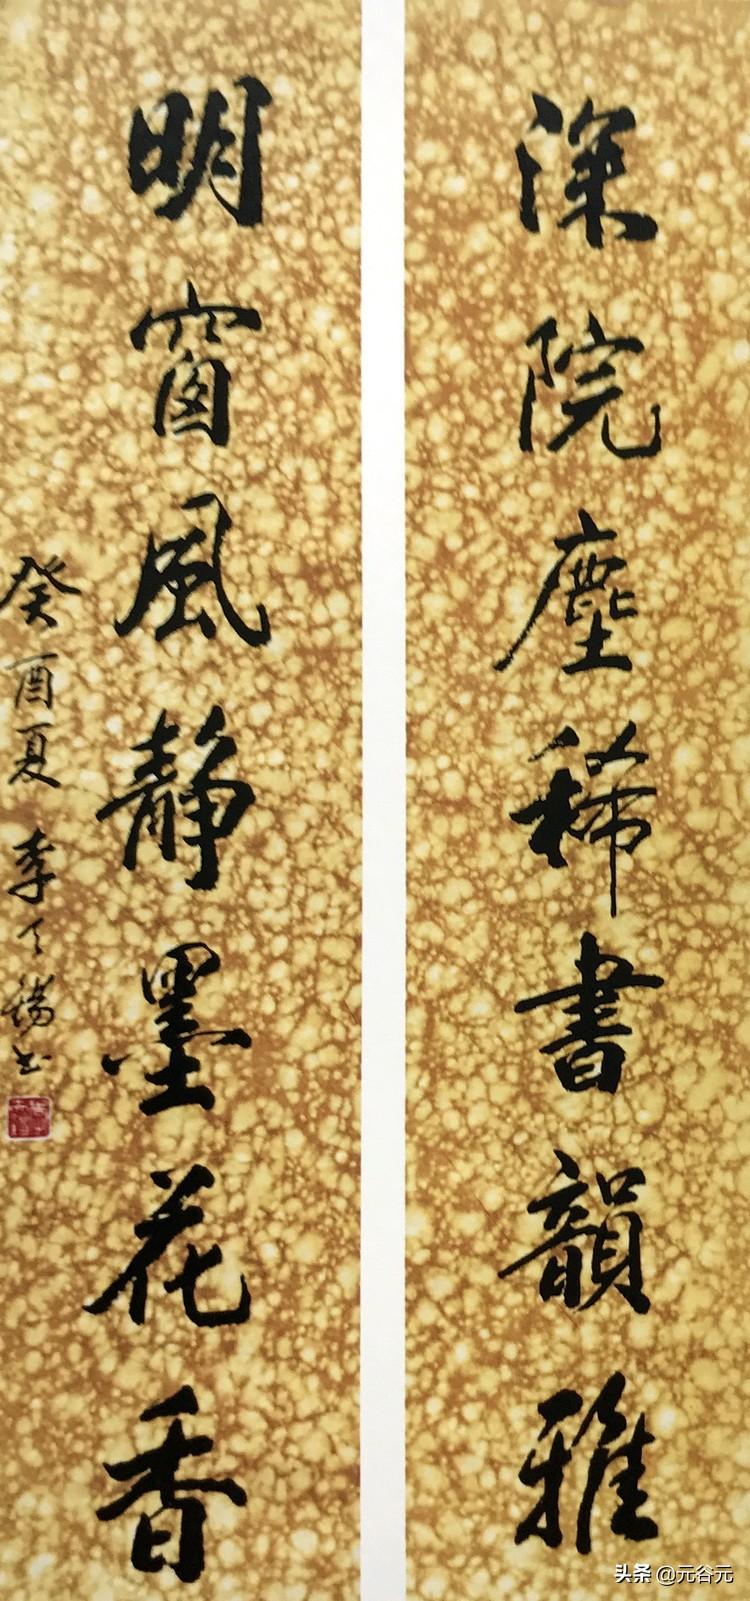 深院塵稀書韻雅
明窗風靜墨花香
癸酉夏 李天錫书
头条 @元谷元